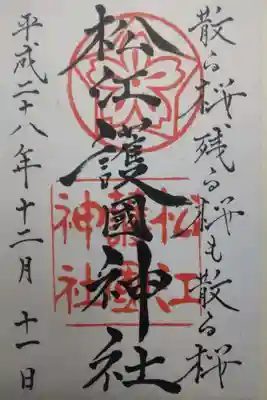 散る桜残る桜も散る桜
松江護國神社
松江護國神社
平成二十八年十二月十一日